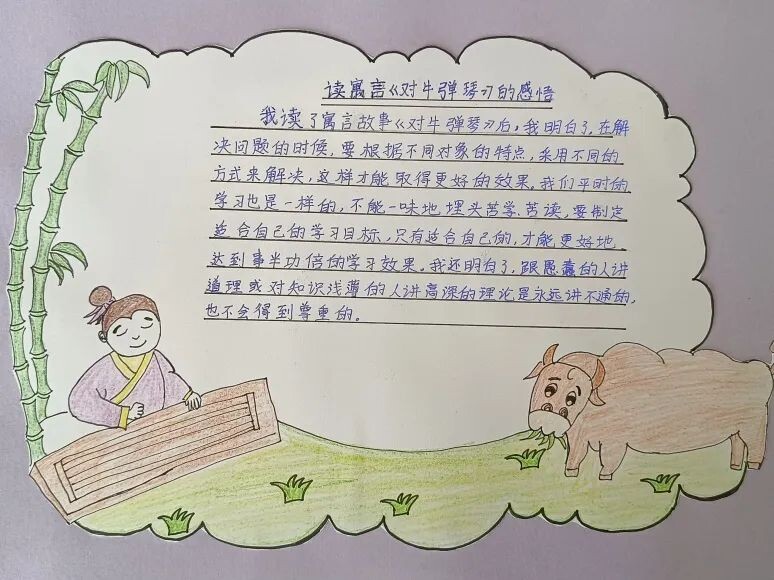 读寓言《对牛弹琴》的感悟
我读了寓言故事《对牛弹琴》后,我明白了,在解
决问题的时候,要根据不同对象的特点,采用不同的
方式来解决,这样才能取得更好的效果。我们平时的
学习也是一样的,不能一味地埋头苦学、苦读,要制定
适合自己的学习目标,只有适合自己的,才能更好地
达到事半功倍的学习效果。我还明白了,跟愚蠢的人讲
道理或对知识浅薄的人讲高深的理论是永远讲不通的,
也不会得到尊重的。